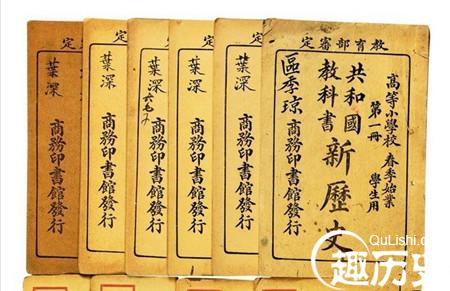 教育部審定
高等小學校
春季始業
第一冊
學生用
共和國
教科書
新歷史
區季瓊
商務印書館發行
定
葉深
商務印書館發行
定
葉深
商務印書館發行
定
葉深
商務印書館發行
定
葉深
商務印書館發行
定
葉深
商務印書館發行
QuLishi.c
趣历史